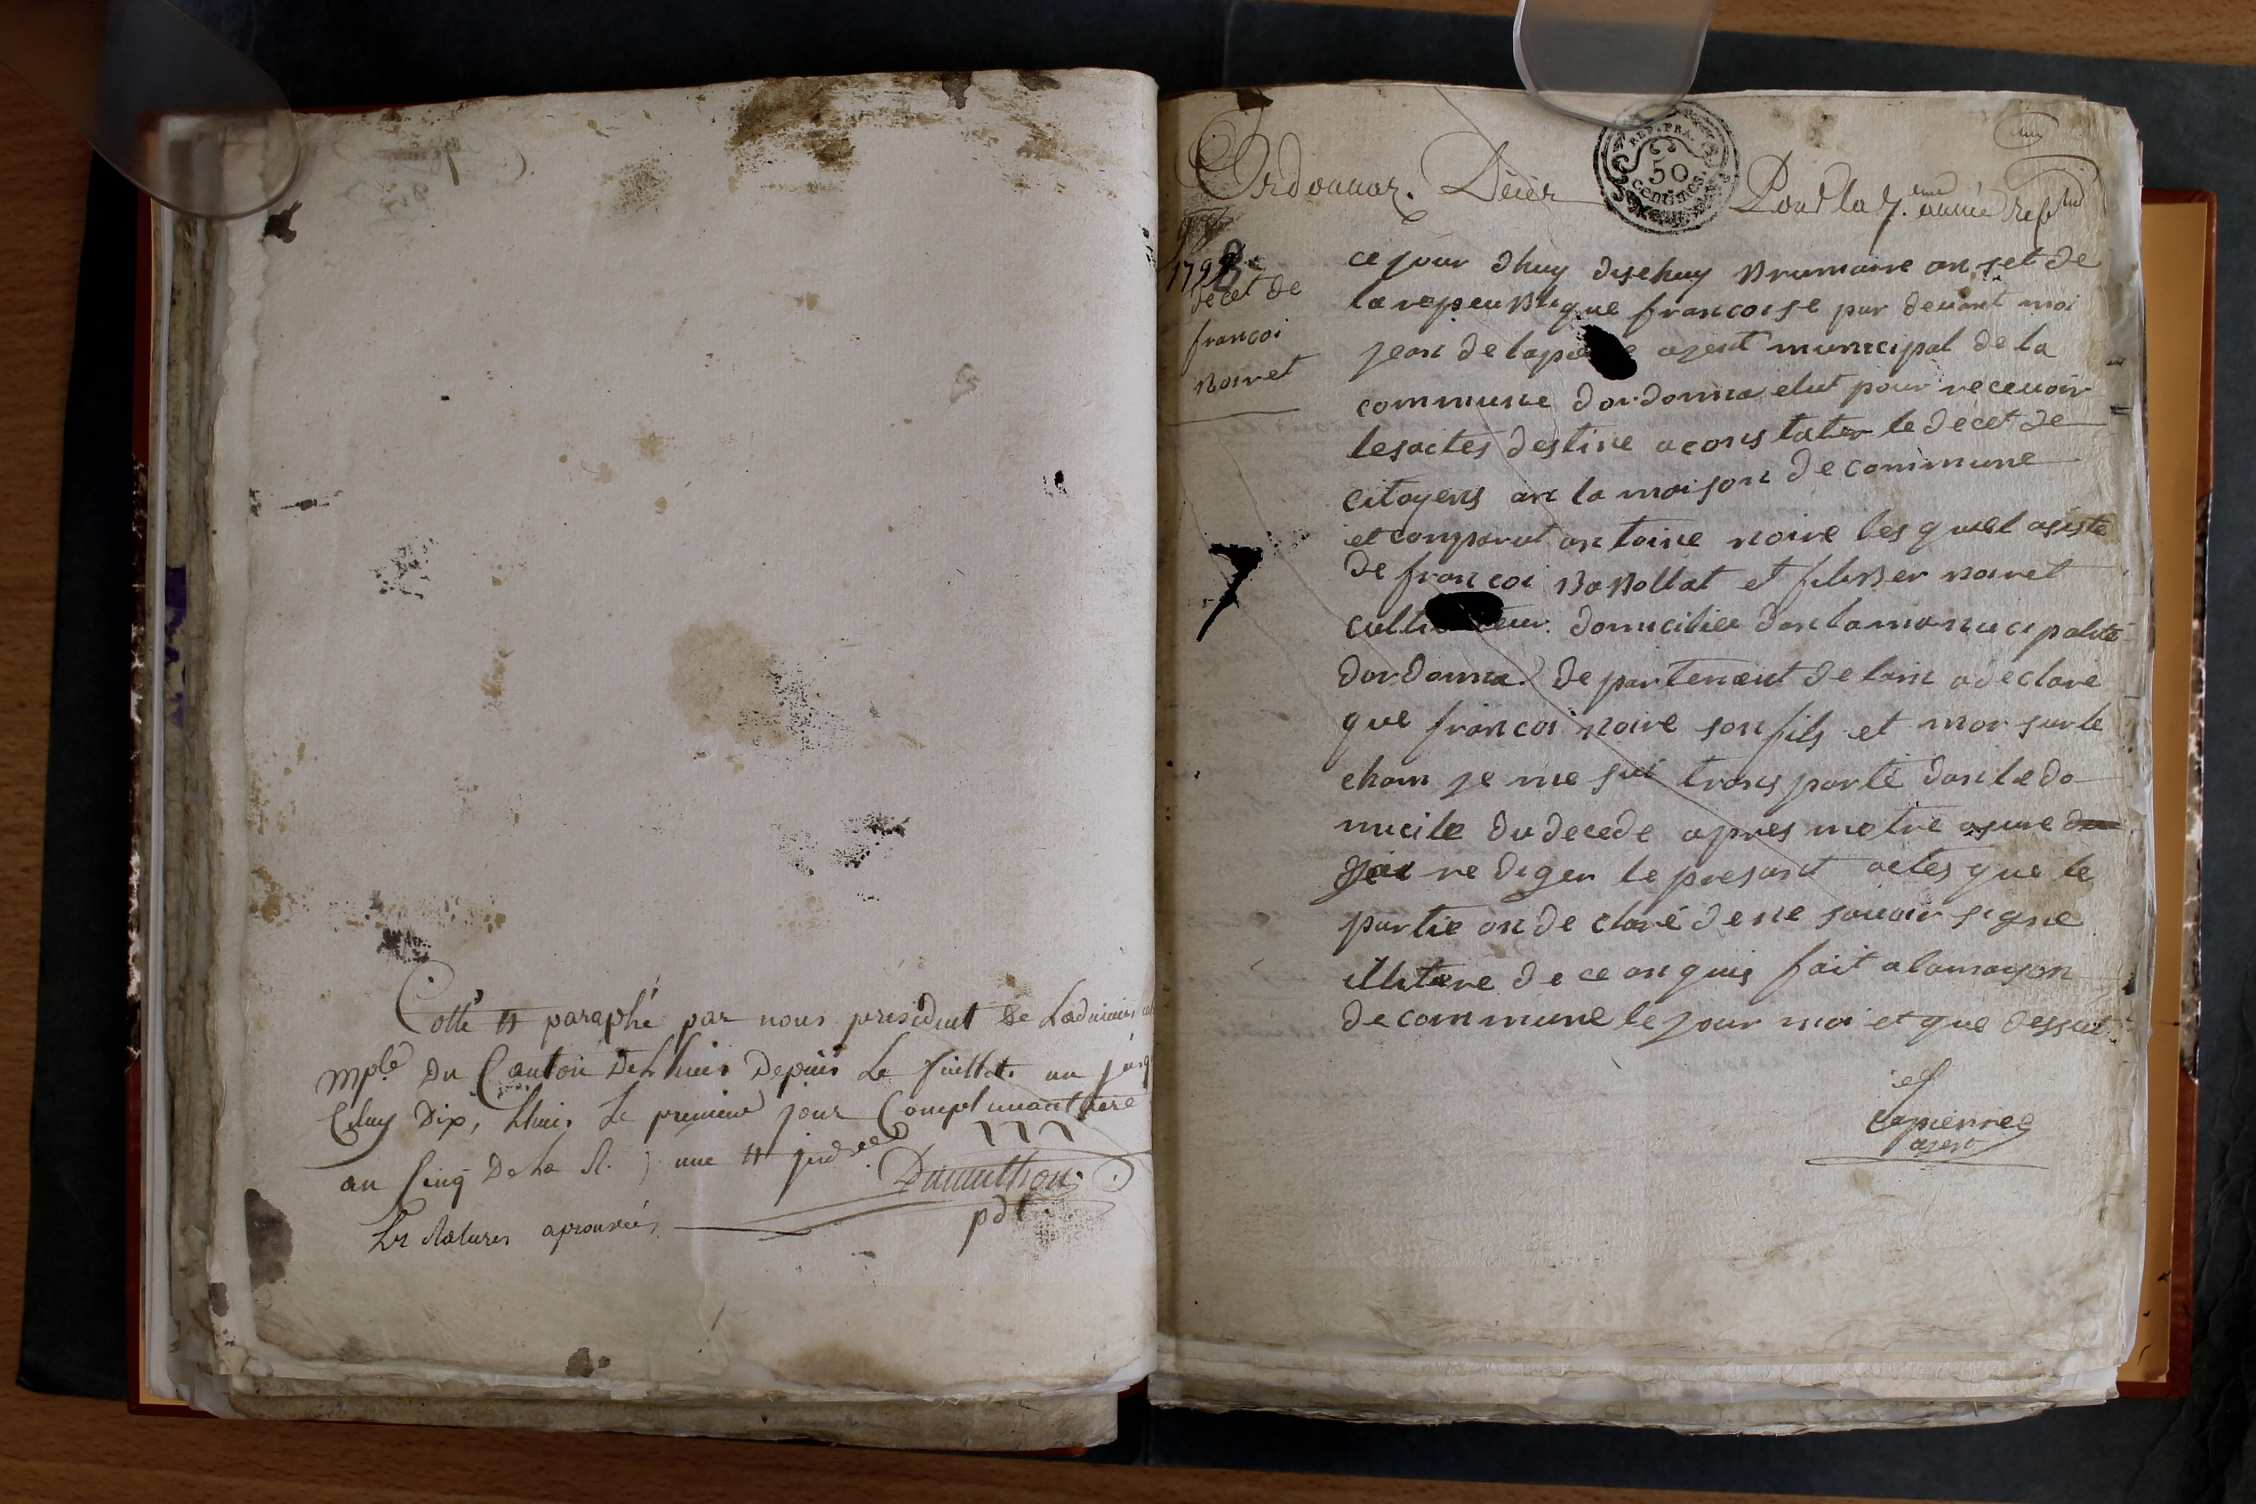 Cotté et paraphé par nous president de Ladminion
mple Du Canton De Lhuis Depuis Le feuillet un jusq
Celuy Dix, Lhuis Le premier jour Complementaire
an Cinq De la R. une et
Dumuthon
pdt
Les Ratures aprouvées
Ordonnaz. Décès Pour la 7.eme année repu
REP. FRA.
50
centimes
1798
decet de
francoi
noiret
7
ce jour dhuy disehuy Brumaire an set de
la repeublique francoise par devant moi
jean de lapierre agent municipal de la
commune dordonna elut pour recevoir
les actes destine a constater le decet de
citoyens an la maison de commune
et comparut antoine noire lesquel asiste
de francoi Babollat et filiber noiret
cultivateur domicilie dan la municipalité
dordonna departement de lain a declare
que francoi noire son fils et mor sur le
cham je me sui transporté dan le do
micile du decede apres metre asure du
jai rediger le presant actes que le
partie on declaré de ne savoir signe
illitere de ce anquis fait a la maison
de commune le jour moi et que dessut
lapierre
agent